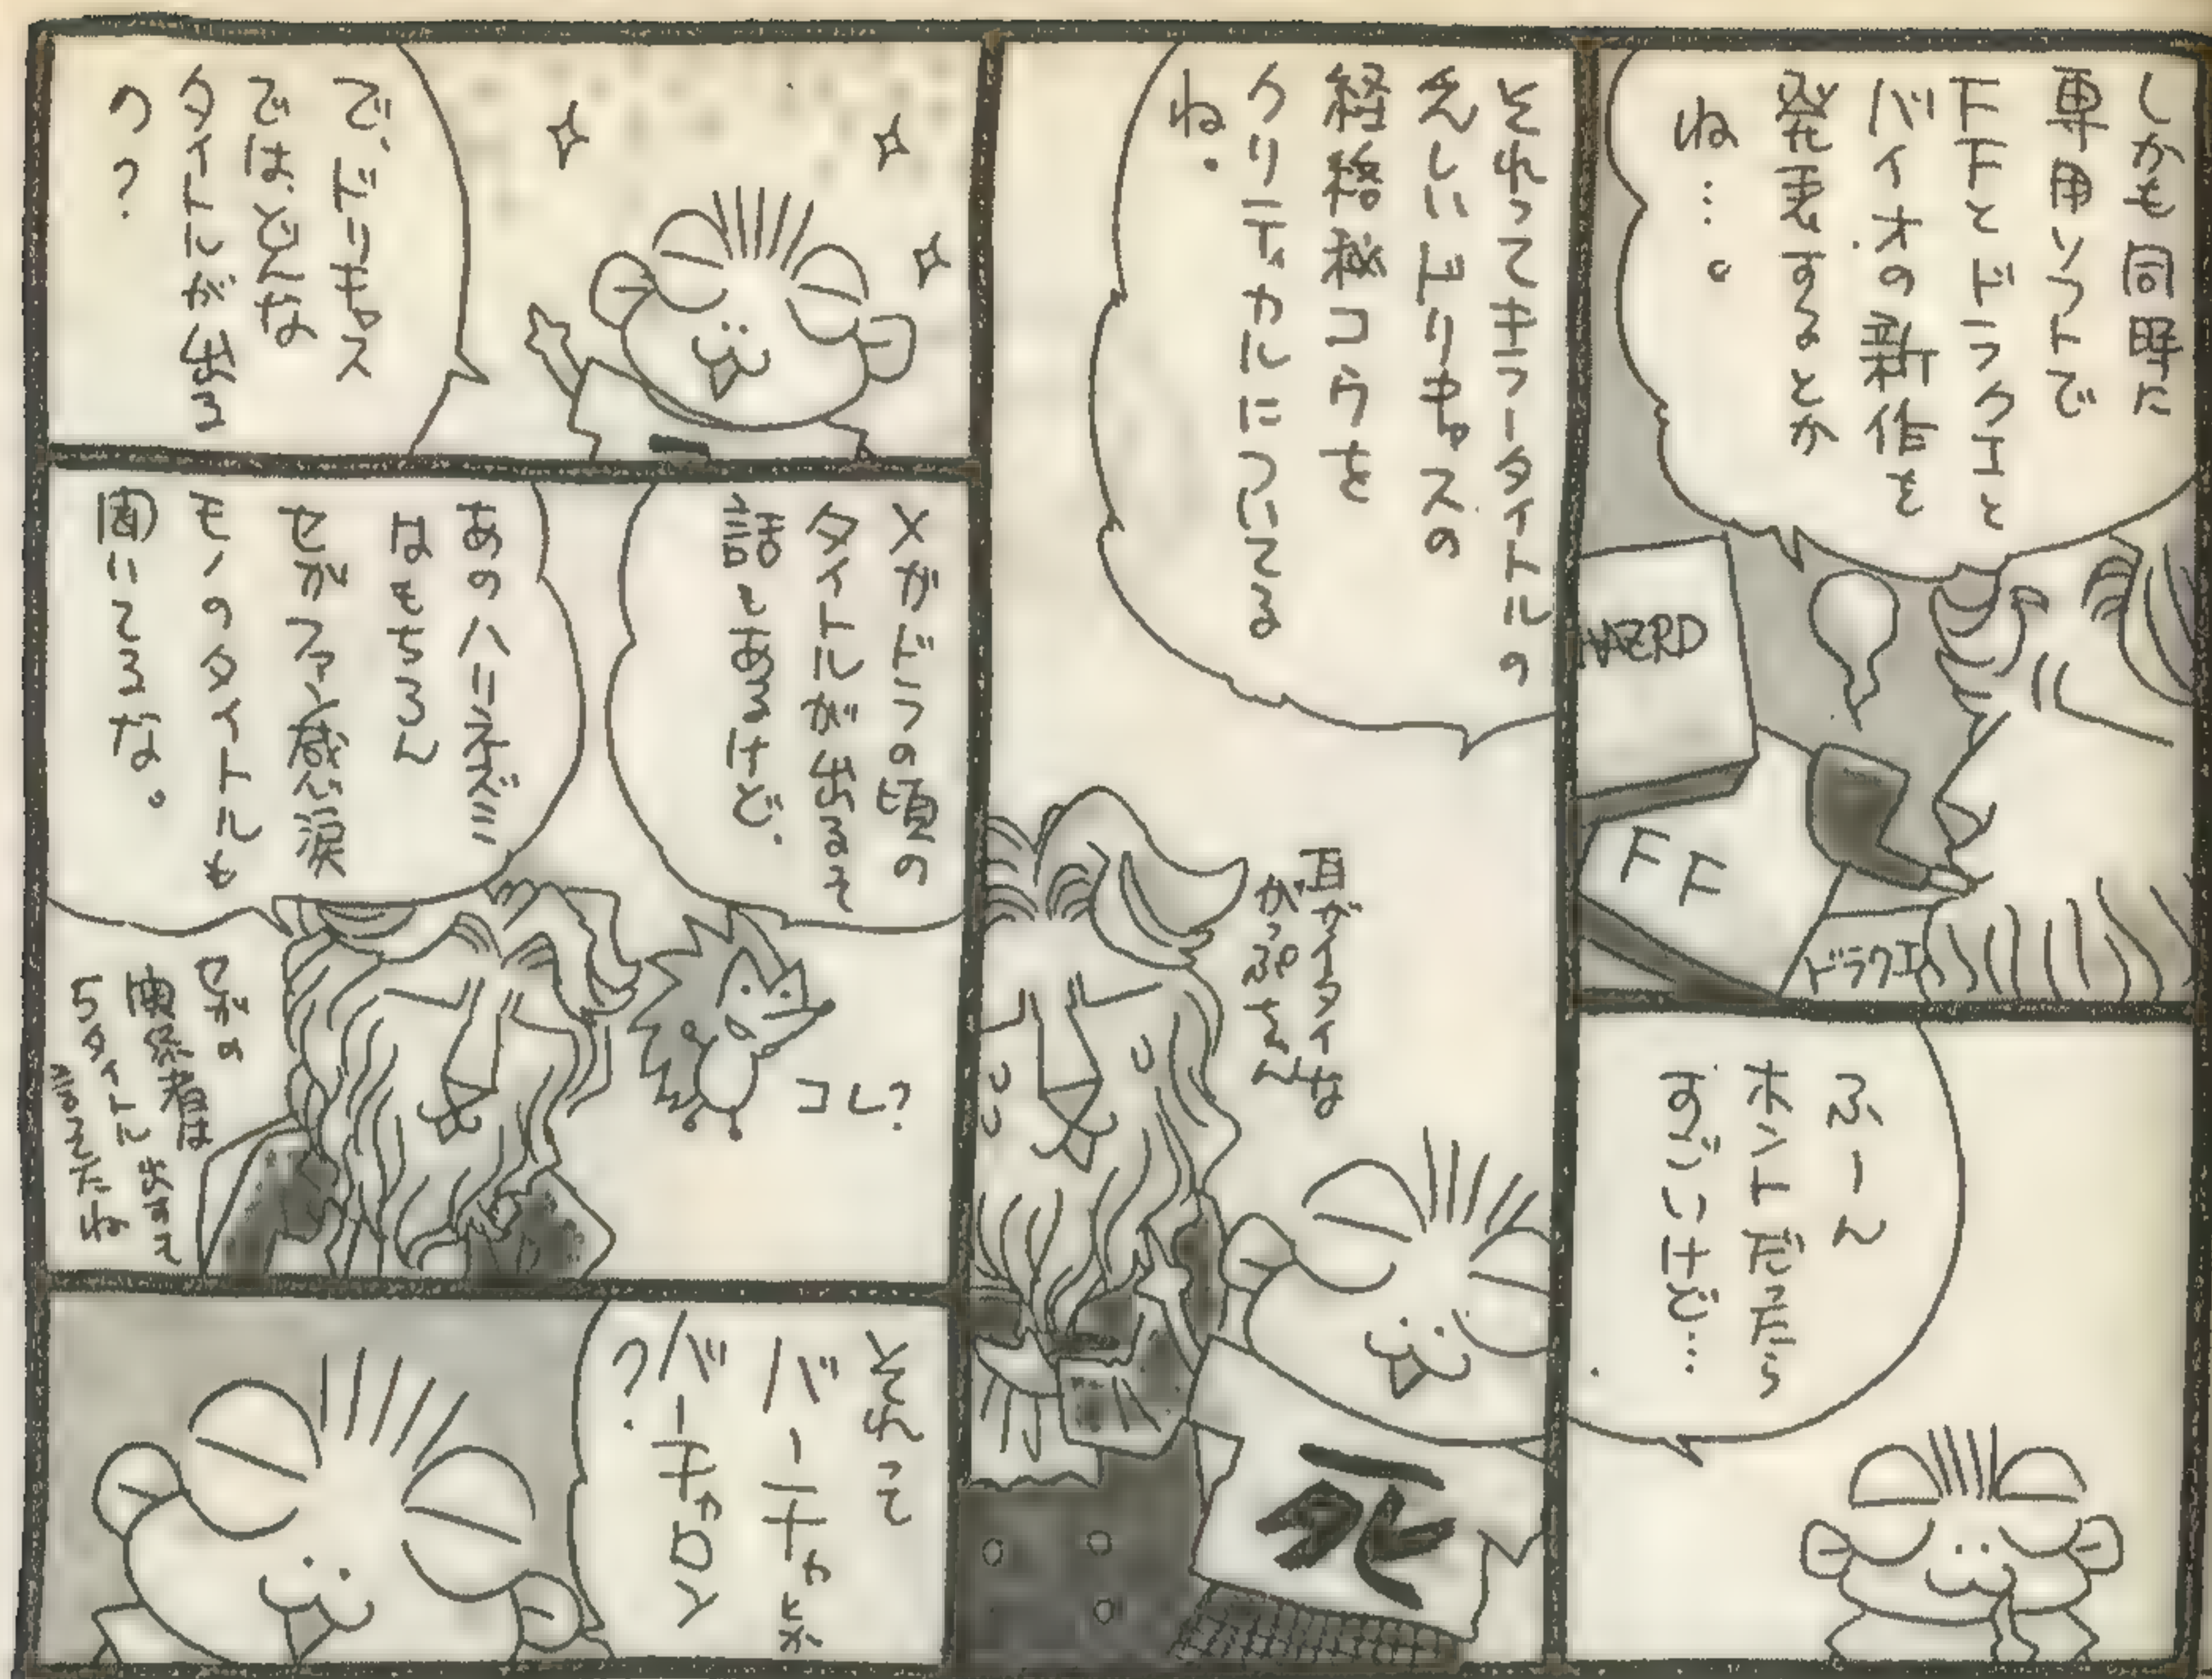 しかも同時に
専用ソフトで
FFとドラクエと
バイオの新作を
発表するとか
ね…。
HAZRD
FF
ドラクエ
ふーん
ホハト売っただら
すごいけど…
それってキラータイトルの
乏しいドリキャスの
クリティカルについてる
ね。
耳がイタイな
かっぷちゃん
死
で、ドリキャス
ではどんな
タイトルが出る
の？
メガドラの頃の
タイトルが出るって
話もあるけど、
コレ？
あのハリネズミ
はもちろん
セガファン感涙
モノのタイトルも
聞いてるな。
セガの
それって
バーチャ
バーチャロン
？